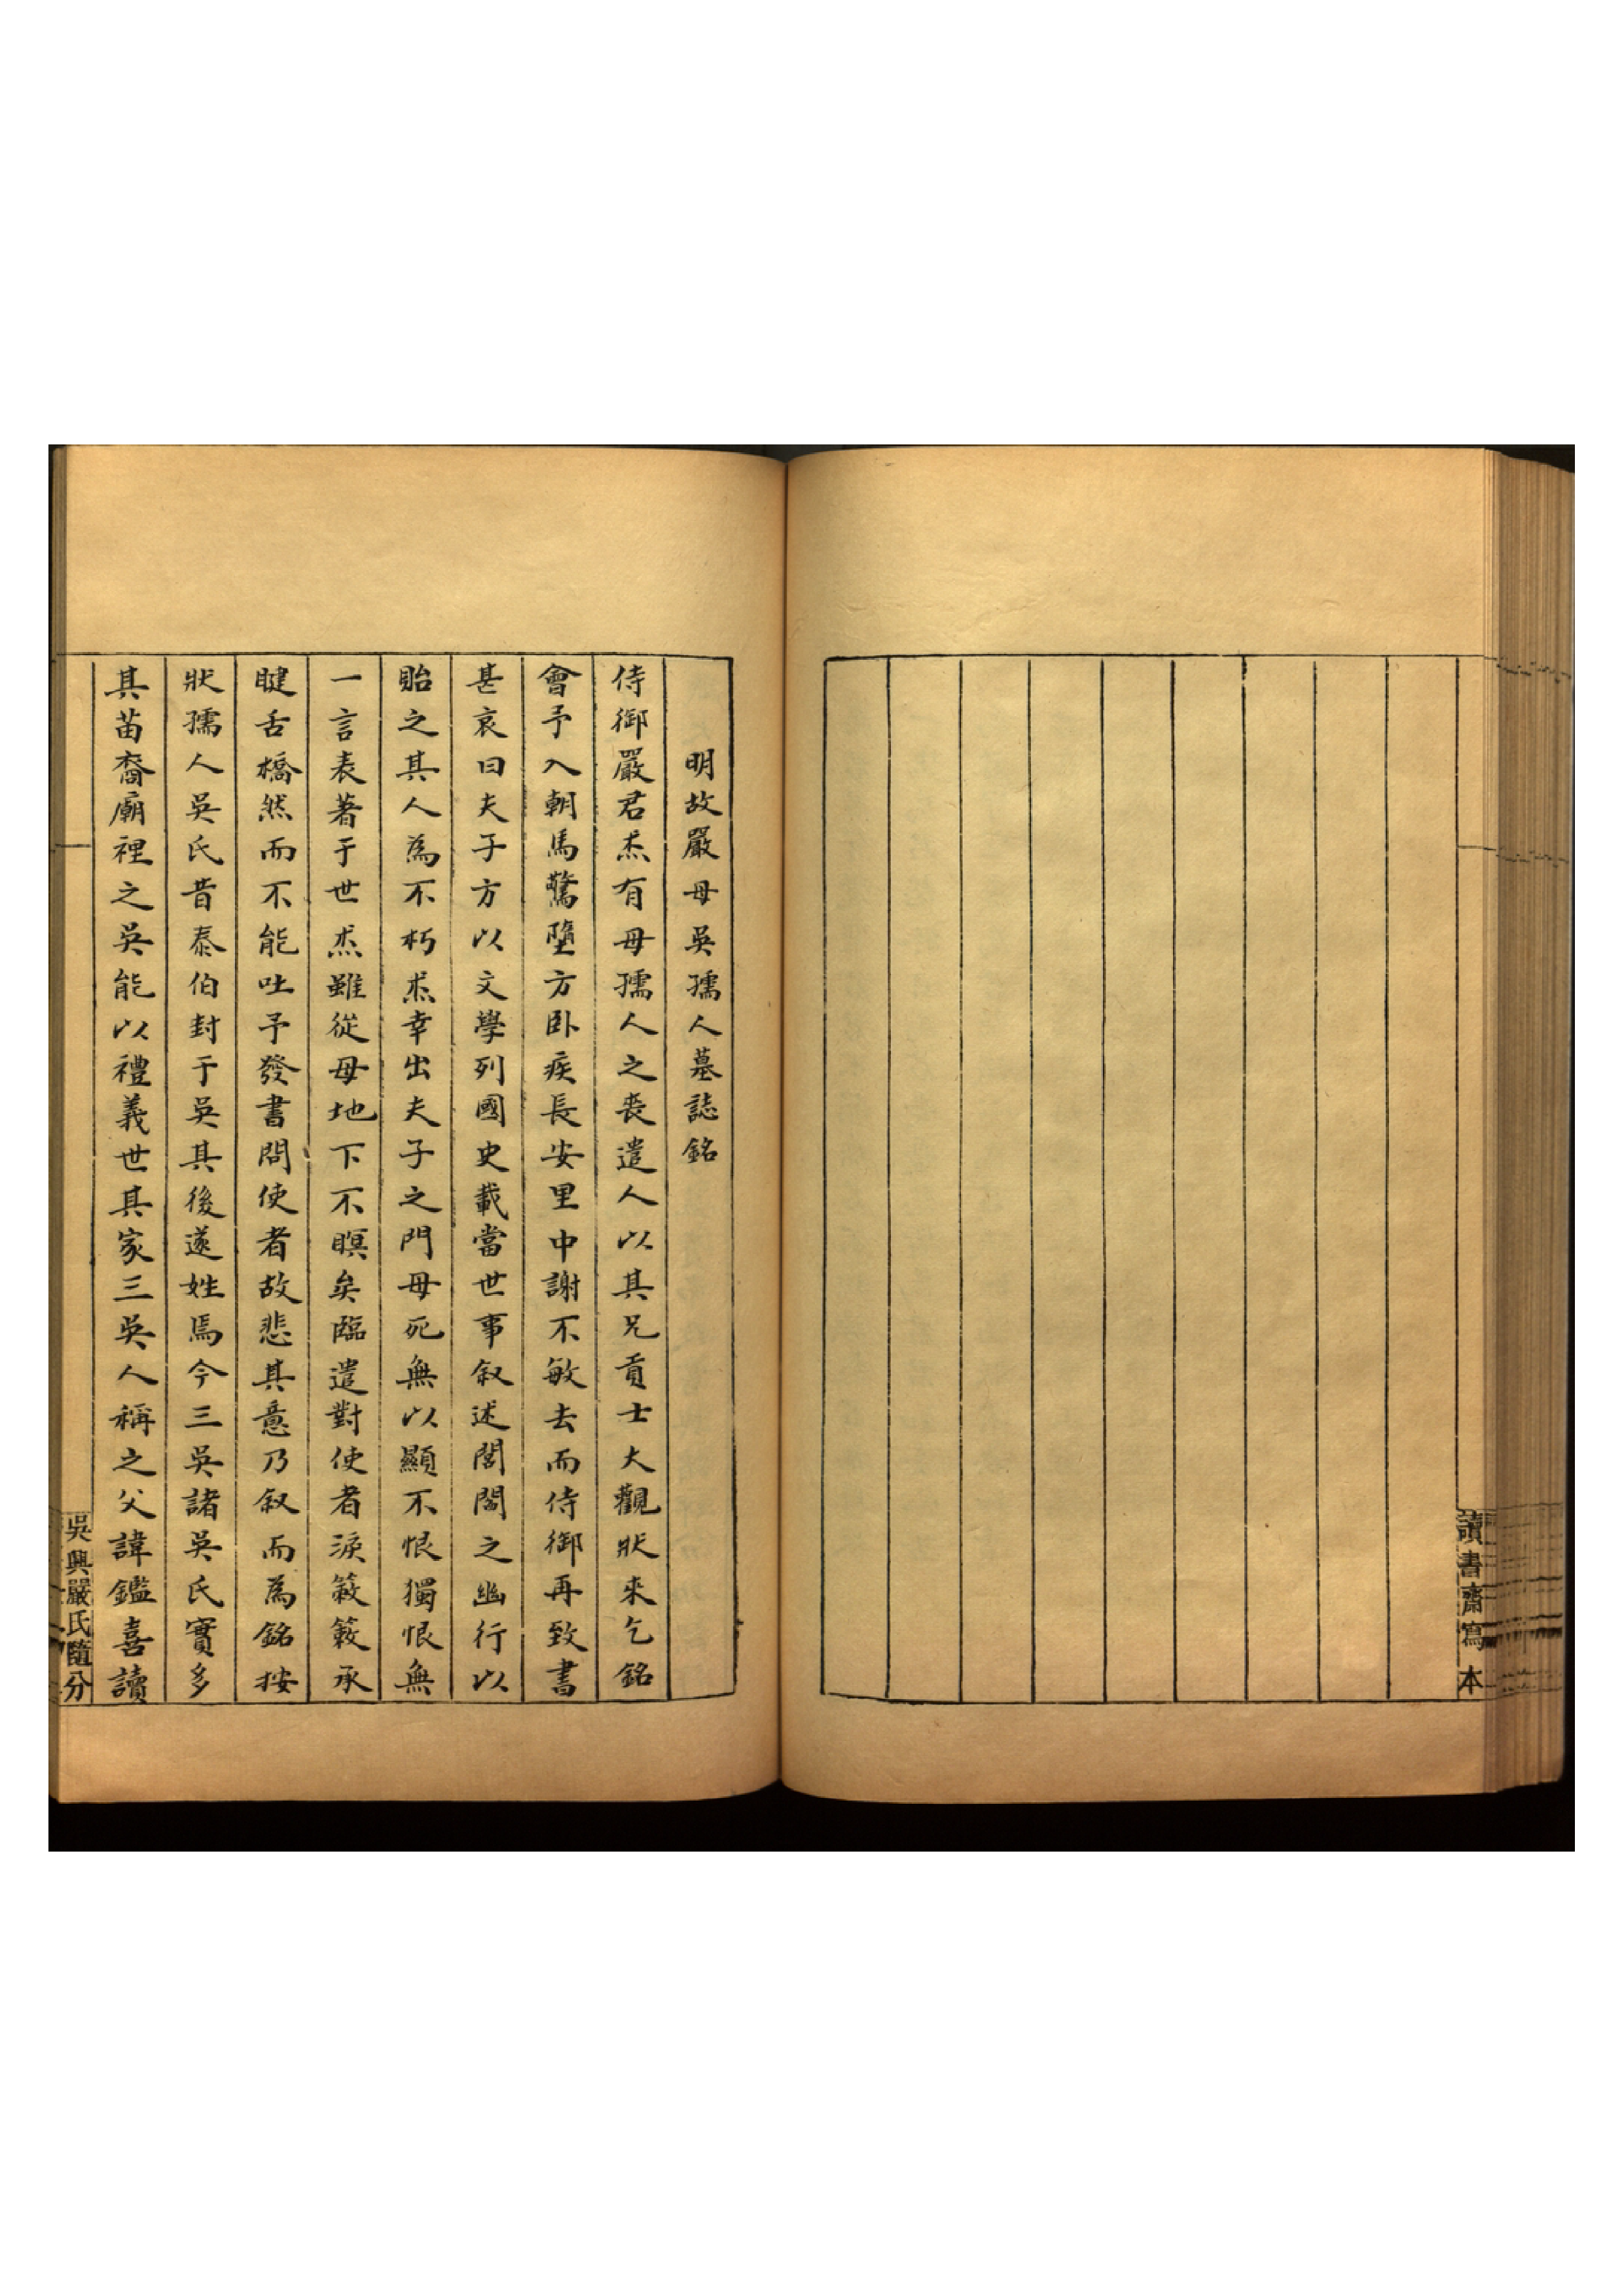 讀書齋寫本
明故嚴母吳孺人墓誌銘
侍御嚴君杰有母孺人之喪遣人以其兄貢士大觀狀來乞銘
會予入朝馬驚墮方卧疾長安里中謝不敏去而侍御再致書
甚哀曰夫子方以文學列國史載當世事叙述閭閻之幽行以
貽之其人為不朽杰幸出夫子之門母死無以顯不恨獨恨無
一言表著于世杰雖從母地下不瞑矣臨遣對使者淚簌簌承
睫舌橋然而不能吐予發書問使者故悲其意乃叙而為銘按
狀孺人吳氏昔泰伯封于吳其後遂姓焉今三吳諸吳氏實多
其苗裔廟裡之吳能以禮義世其家三吳人稱之父諱鑑喜讀
吳興嚴氏隨分